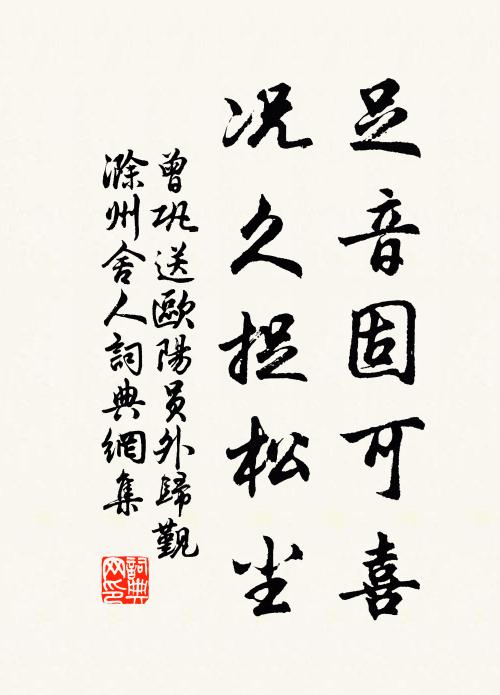 足音固可喜
况久捉松尘
曾巩送歐陽员外歸觀
滁州舍人詞典網集
詞典
网印